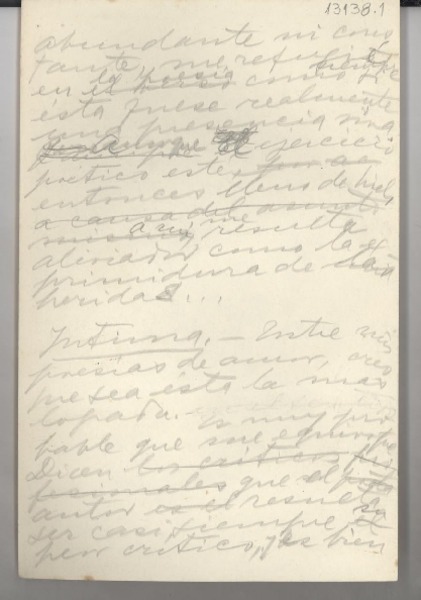 13138.1
abundante ni cons
tante, me refugié
en la poesía como si
ésta fuese realmente
una presencia mía
aunque el ejercicio
poético este, por
entonces lleno de hiel,
a causa del asunto
mismo, a mí me resulta
aliviador como la es
primidura de las
heridas...
Intima. - Entre mis
poesías de amor, creo
que sea esta la más
lograda. -
Es muy pro
bable que me equivoque
Dicen los críticos pro
fesionales que el
autor es el resulta
ser casi siempre su
peor crítico, y es bien